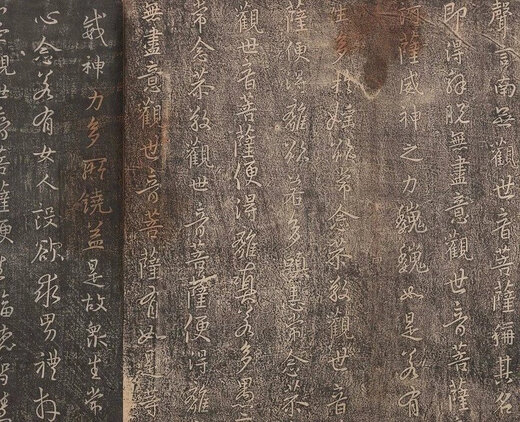 聲言南無觀世音菩薩稱其名
即得解脫無盡意觀世音菩薩
訶薩威神之力巍巍如是若有
生多於婬欲常念恭敬觀世音
薩便得離欲若多瞋恚常念恭
觀世音菩薩便得離瞋若多愚
常念恭敬觀世音菩薩便得離
無盡意觀世音菩薩有如是等
威神力多所饒益是故眾生常
心念若有女人設欲求男禮拜
觀世音菩薩便生福德智